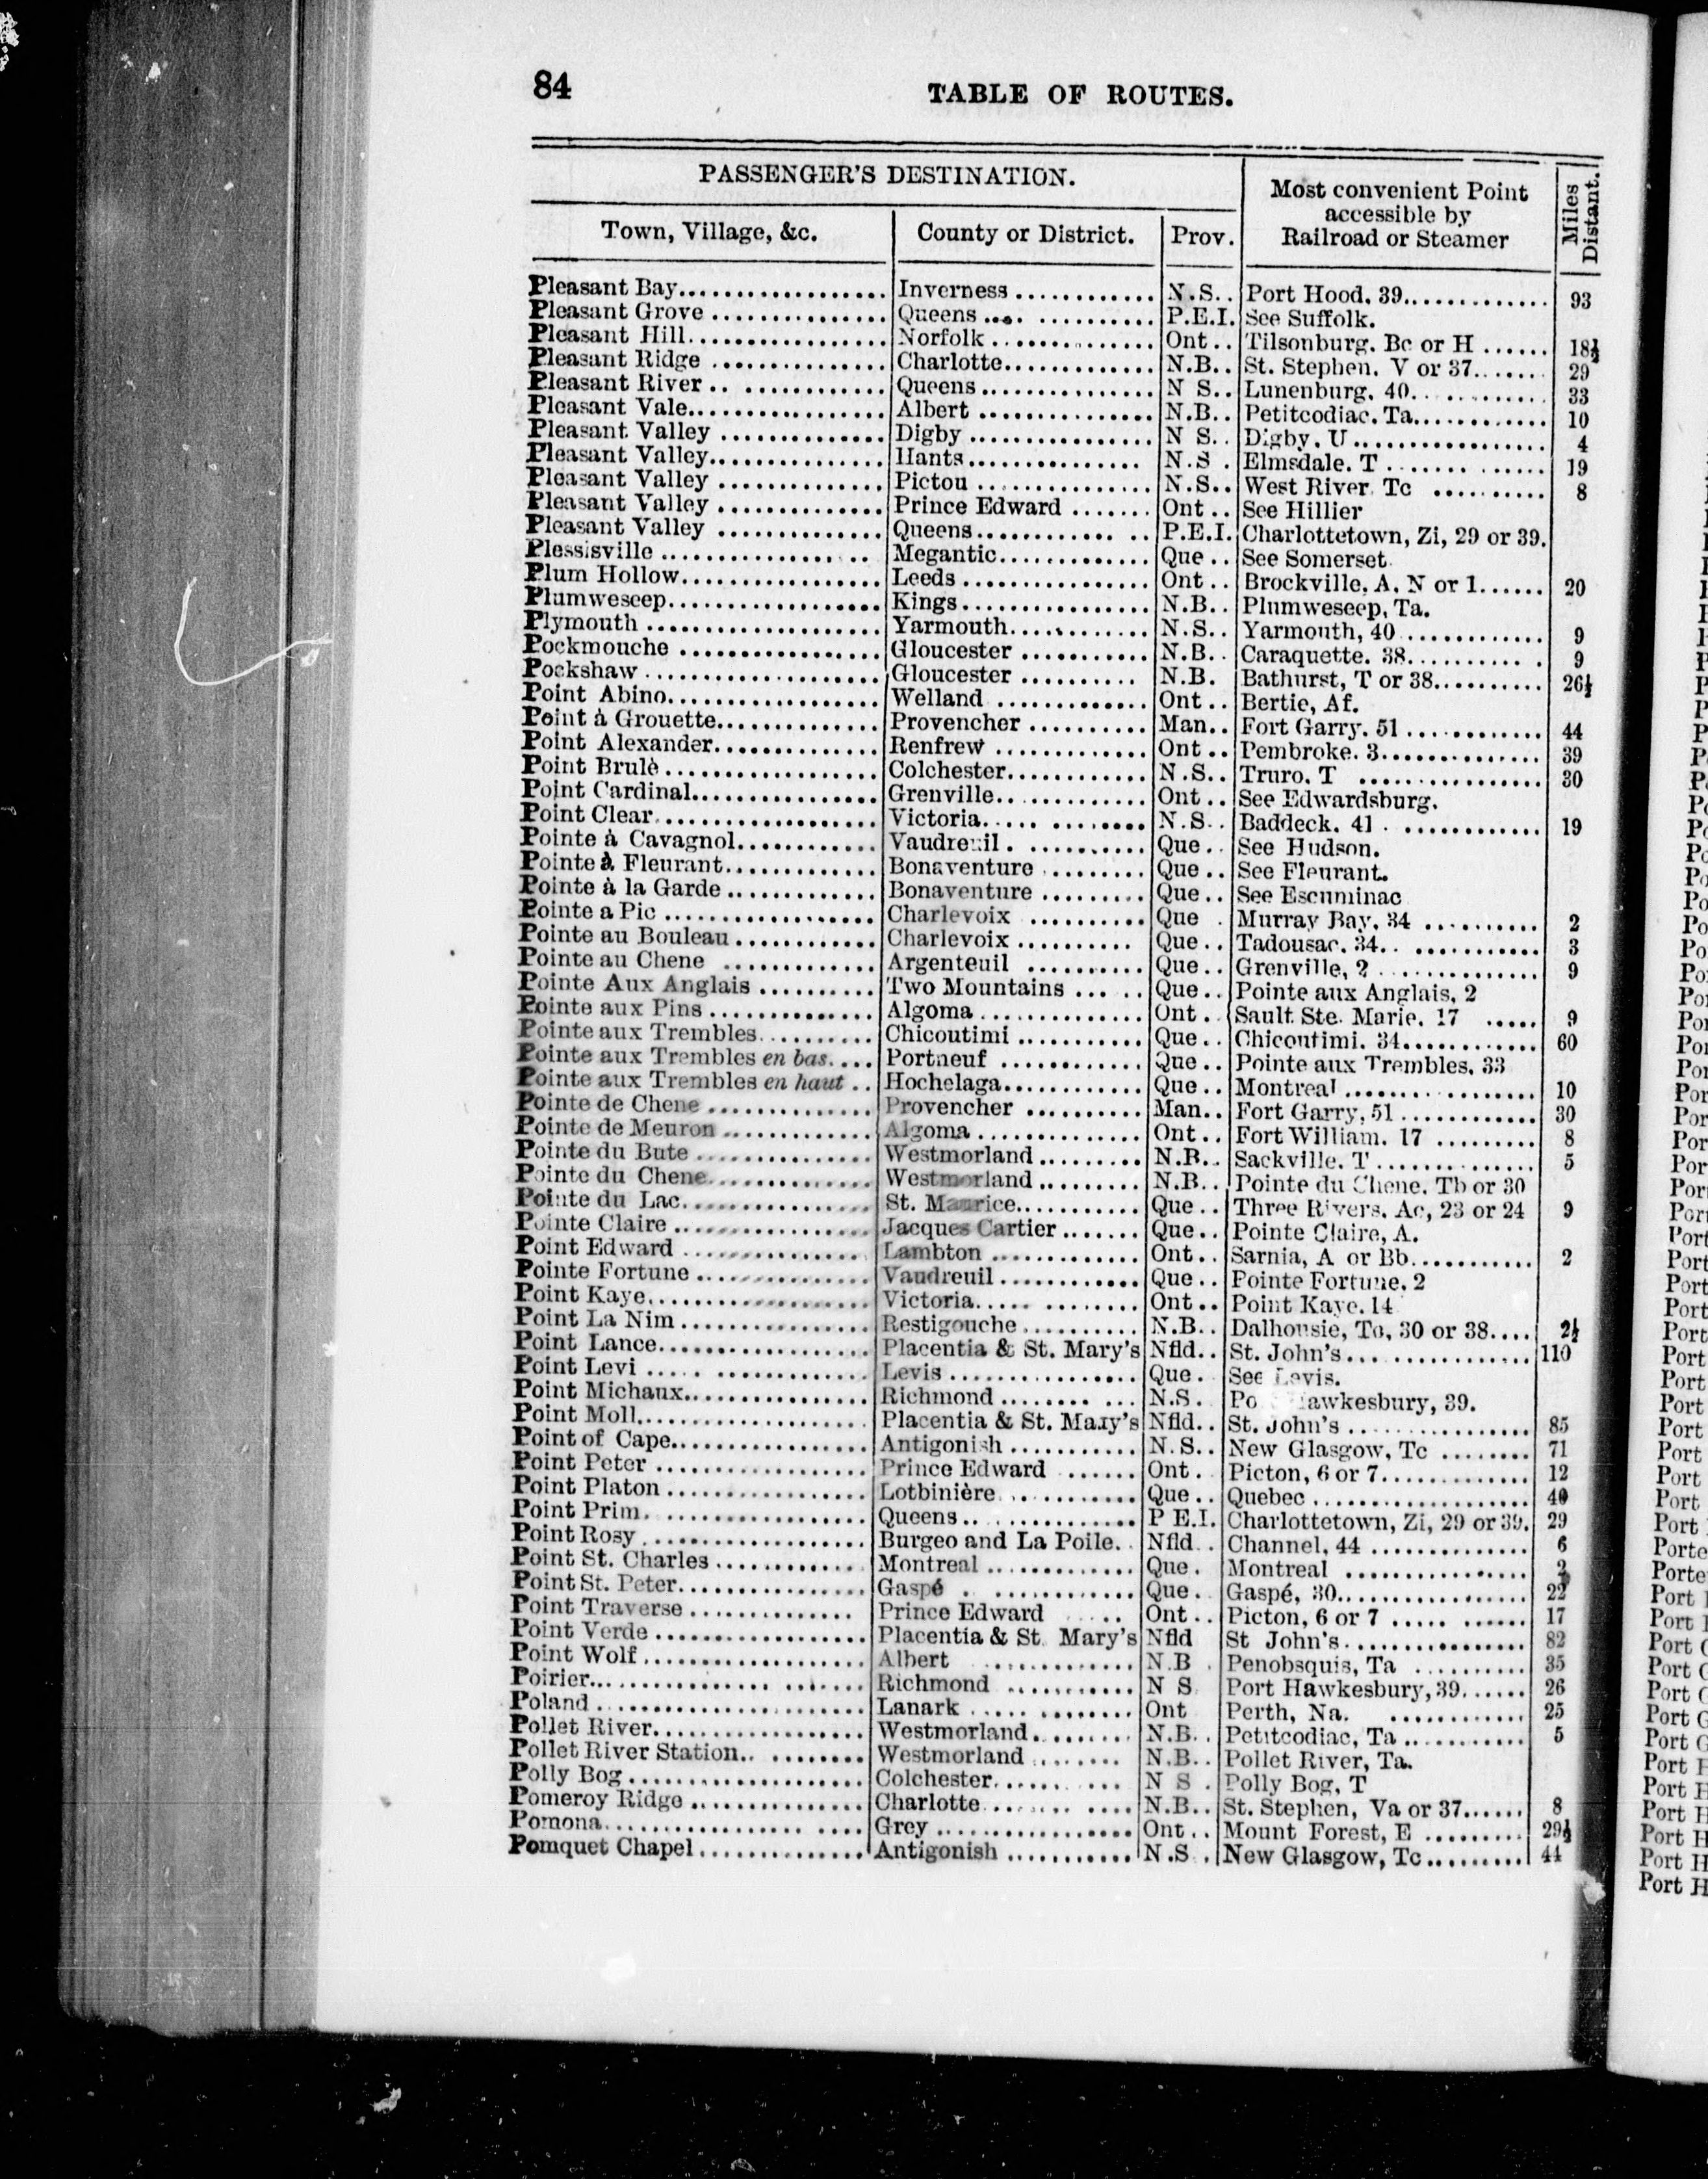 84
TABLE OF ROUTES.
PASSENGER'S DESTINATION.
Most convenient Point accessible by Railroad or Steamer
Miles Distant.
Town, Village, &c. County or District. Prov.
Pleasant Bay.................. Inverness ............ N.S.. Port Hood, 39.............. 93
Pleasant Grove ............... Queens .... ........... P.E.I. See Suffolk.
Pleasant Hill................. Norfolk .............. Ont .. Tilsonburg, Bc or H ...... 18½
Pleasant Ridge ............... Charlotte............. N.B.. St. Stephen, V or 37....... 29
Pleasant River .. ............ Queens ............... N S.. Lunenburg, 40............. 33
Pleasant Vale................. Albert ............... N.B.. Petitcodiac, Ta............ 10
Pleasant Valley .............. Digby ................ N S.. Digby, U ................. 4
Pleasant Valley............... Hants............... N.S . Elmsdale, T .............. 19
Pleasant Valley .............. Pictou ............... N.S.. West River, Tc .......... 8
Pleasant Valley .............. Prince Edward ....... Ont .. See Hillier
Pleasant Valley .............. Queens............ .. P.E.I. Charlottetown, Zi, 29 or 39.
Plessisville ................. Megantic............. Que .. See Somerset.
Plum Hollow.................. Leeds ................ Ont .. Brockville, A, N or 1...... 20
Plumweseep................... Kings................ N.B.. Plumweseep, Ta.
Plymouth ..................... Yarmouth............ N.S.. Yarmouth, 40 ............ 9
Pockmouche ................. Gloucester ........... N.B.. Caraquette, 38........... . 9
Pockshaw ..................... Gloucester .......... N.B. Bathurst, T or 38.......... 26½
Point Abino................... Welland ............. Ont .. Bertie, Af.
Point à Grouette.............. Provencher .......... Man.. Fort Garry, 51 ............ 44
Point Alexander............... Renfrew ............. Ont .. Pembroke, 3.............. 39
Point Brulè................... Colchester............ N.S.. Truro, T ................ 30
Point Cardinal................ Grenville............. Ont .. See Edwardsburg.
Point Clear................... Victoria..... ........ N.S.. Baddeck, 41 . ............ 19
Pointe à Cavagnol............ Vaudreuil . .......... Que .. See Hudson.
Pointe à Fleurant............. Bonaventure ......... Que .. See Fleurant.
Pointe à la Garde ............. Bonaventure ......... Que .. See Escuminac
Pointe a Pic .................. Charlevoix .......... Que . Murray Bay, 34 .......... 2
Pointe au Bouleau ............ Charlevoix .......... Que .. Tadousac, 34.. ........... 3
Pointe au Chene ............. Argenteuil .......... Que .. Grenville, 2 .............. 9
Pointe Aux Anglais .......... Two Mountains ... .. Que .. Pointe aux Anglais, 2
Pointe aux Pins .............. Algoma.............. Ont . Sault Ste. Marie, 17 ..... 9
Pointe aux Trembles.......... Chicoutimi ........... Que .. Chicoutimi, 34............ 60
Pointe aux Trembles en bas.... Portneuf ............ Que .. Pointe aux Trembles, 33
Pointe aux Trembles en haut .. Hochelaga............ Que .. Montreal ................. 10
Pointe de Chene .............. Provencher .......... Man.. Fort Garry, 51 ............ 30
Pointe de Meuron ............. Algoma .............. Ont .. Fort William, 17 ......... 8
Pointe du Bute ............... Westmorland ......... N.B.. Sackville, T .............. 5
Pointe du Chene.............. Westmorland ......... N.B.. Pointe du Chene, Tb or 30
Pointe du Lac................. St. Maurice........... Que .. Three Rivers, Ac, 23 or 24 9
Pointe Claire ................. Jacques Cartier ....... Que .. Pointe Claire, A.
Point Edward ................ Lambton ............. Ont .. Sarnia, A or Bb........... 2
Pointe Fortune ............... Vaudreuil ............ Que .. Pointe Fortune, 2
Point Kaye................... Victoria..... ........ Ont .. Point Kaye, 14
Point La Nim ................ Restigouche .......... N.B.. Dalhousie, Ta, 30 or 38.... 2½
Point Lance.................. Placentia & St. Mary's Nfld.. St. John's ................ 110
Point Levi .................. Levis ................ Que . See Levis.
Point Michaux................ Richmond ........ ... N.S. Po awkesbury, 39.
Point Moll.................... Placentia & St. Mary's Nfld.. St. John's ................ 85
Point of Cape................. Antigonish ........... N.S.. New Glasgow, Tc ........ 71
Point Peter .................. Prince Edward ...... Ont . Picton, 6 or 7............. 12
Point Platon ................. Lotbinière............ Que .. Quebec ................... 40
Point Prim.................... Queens............... P E.I. Charlottetown, Zi, 29 or 39. 29
Point Rosy ................... Burgeo and La Poile. . Nfld . . Channel, 44 .............. 6
Point St. Charles ............. Montreal ............. Que . Montreal ................ 2
Point St. Peter................ Gaspé . ............ Que . Gaspé, 30................. 22
Point Traverse .............. Prince Edward ..... Ont .. Picton, 6 or 7 ..... ...... 17
Point Verde .................. Placentia & St. Mary's Nfld St John's................ 82
Point Wolf ................... Albert ............. N.B . Penobsquis, Ta .......... 35
Poirier................ ....... Richmond ........... N S Port Hawkesbury, 39...... 26
Poland ....................... Lanark ..... ........ Ont Perth, Na. ............ 25
Pollet River................... Westmorland......... N.B.. Petitcodiac, Ta ........... 5
Pollet River Station.. ........ Westmorland ........ N.B.. Pollet River, Ta.
Polly Bog ..................... Colchester....... ... N S . Polly Bog, T
Pomeroy Ridge ............... Charlotte ....... .... N.B.. St. Stephen, Va or 37...... 8
Pomona................. .... Grey ................. Ont.. Mount Forest, E ......... 29½
Pomquet Chapel .............. Antigonish ........... N.S . New Glasgow, Tc......... 44